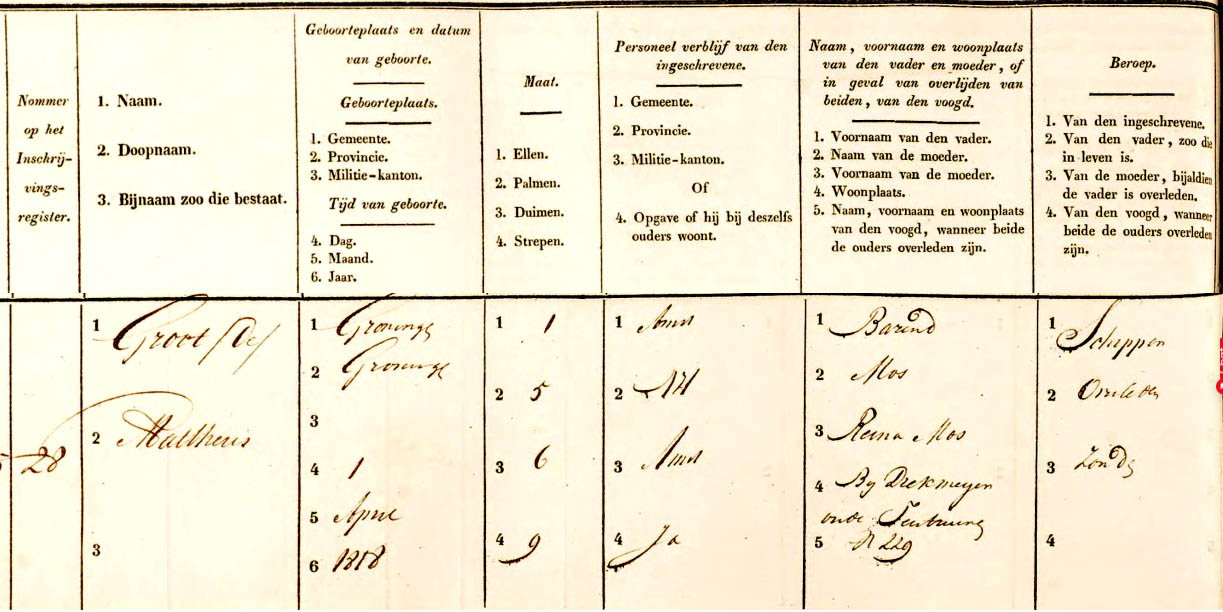 Nommer
op het
Inschrij-
vings-
register.
1. Naam.
2. Doopnaam.
3. Bijnaam zoo die bestaat.
Geboorteplaats en datum
van geboorte.
Geboorteplaats.
1. Gemeente.
2. Provincie.
3. Militie-kanton.
Tijd van geboorte.
4. Dag.
5. Maand.
6. Jaar.
Maat.
1. Ellen.
2. Palmen.
3. Duimen.
4. Strepen.
Personeel verblijf van den
ingeschrevene.
1. Gemeente.
2. Provincie.
3. Militie-kanton.
Of
4. Opgave of hij bij deszelfs
ouders woont.
Naam, voornaam en woonplaats
van den vader en moeder, of
in geval van overlijden van
beiden, van den voogd.
1. Voornaam van den vader.
2. Naam van de moeder.
3. Voornaam van de moeder.
4. Woonplaats.
5. Naam, voornaam en woonplaats
van den voogd, wanneer beide
de ouders overleden zijn.
Beroep.
1. Van den ingeschrevene.
2. Van den vader, zoo die
in leven is.
3. Van de moeder, bijaldien
de vader is overleden.
4. Van den voogd, wanneer
beide de ouders overleden
zijn.
28
1 Groot /de/
2 Mattheus
3
1 Groninge
2 Groninge
3
4 1
5 April
6 1818
1 1
2 5
3 6
4 9
1 Amst
2 NH
3 Amst
4 Ja
1 Barend
2 Mos
3 Reina Mos
4 By Diekmeyer
5 N 229
1 Schipper
2 Overleden
3 Zonde
4